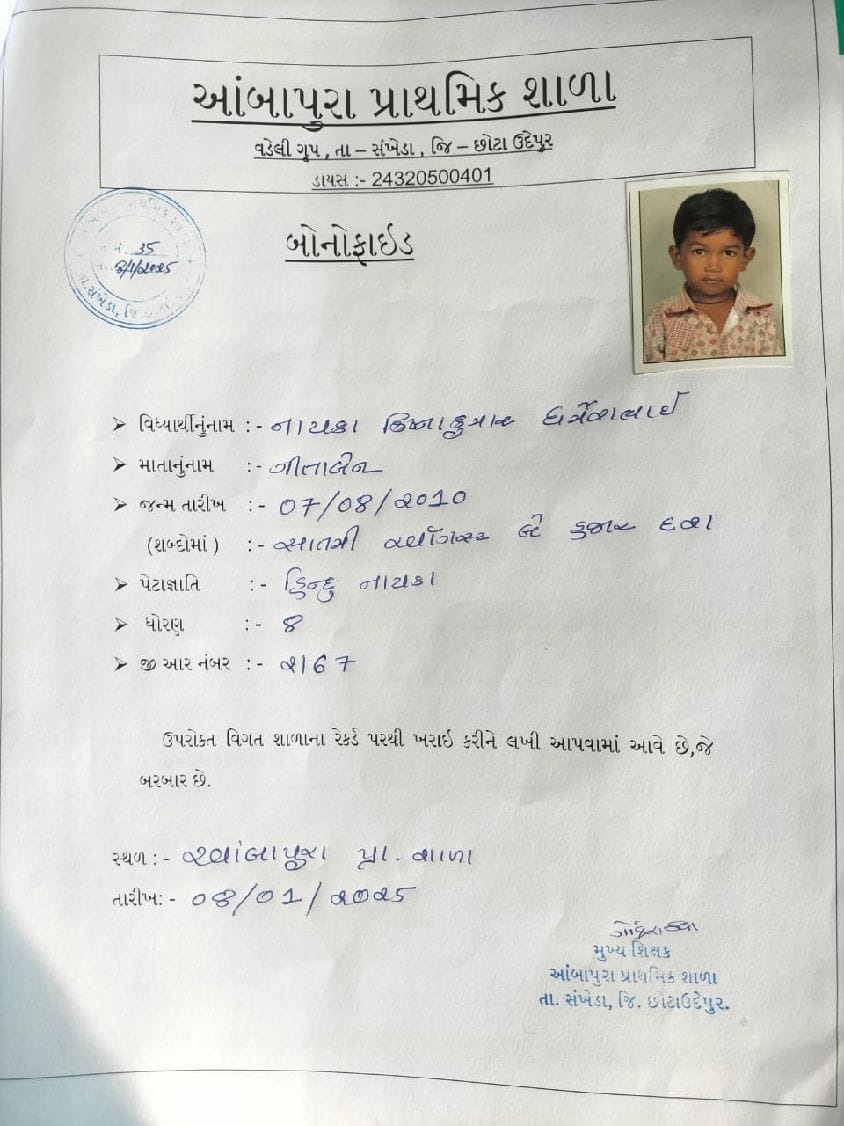 આંબાપુરા પ્રાથમિક શાળા
વડેલી ગૃપ , તા – સંખેડા , જિ – છોટા ઉદેપુર
ડાયસ :- 24320500401
35
8/1/2025
તા.સંખેડા, જિ.
બોનોફાઇડ
➤ વિધ્યાર્થીનુંનામ :- નાયકા ધર્મેશભાઈ
➤ માતાનુંનામ :- ગીતાબેન
➤ જન્મ તારીખ :- 07/08/૨010
(શબ્દોમાં ) :- સાતમી ઓગસ્ટ બે હજાર દશ
➤ પેટાજ્ઞાતિ :- હિન્દુ નાયકા
➤ ધોરણ :- ૪
➤ જી આર નંબર :- ૨167
ઉપરોકત વિગત શાળાના રેકર્ડ પરથી ખરાઇ કરીને લખી આપવામાં આવે છે,જે
બરબાર છે.
સ્થળ :- આંબાપુરા પ્રા. શાળા
તારીખ: - 0૪/01/૨0૨5
મુખ્ય શિક્ષક
આંબાપુરા પ્રાથમિક શાળા
તા. સંખેડા, જિ. છોટાઉદેપુર.